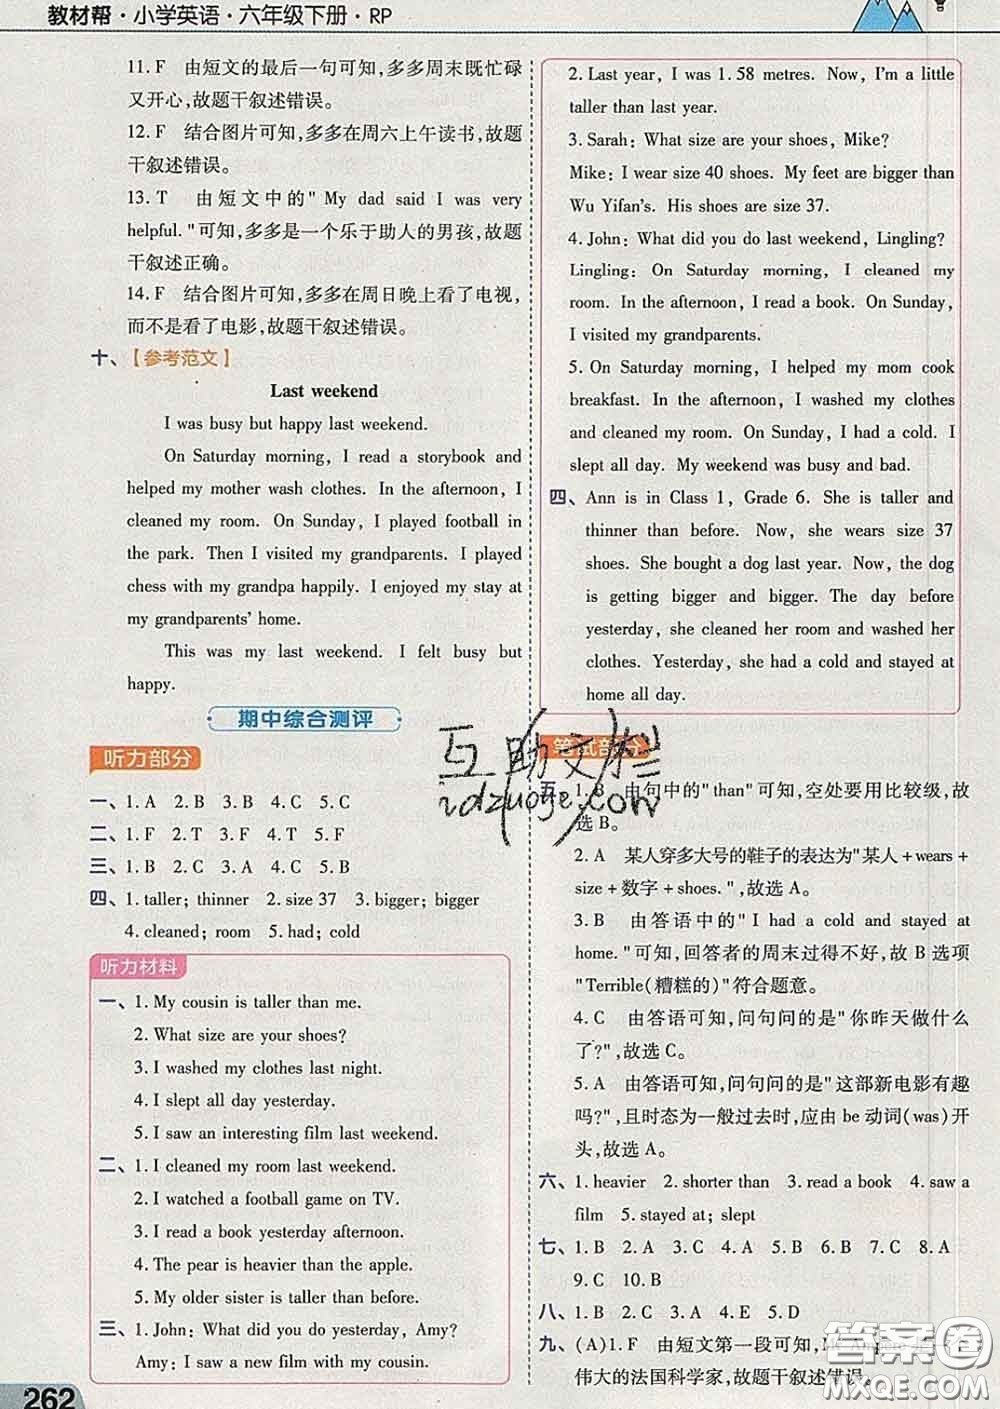 教材帮·小学英语·六年级下册·RP
11. F 由短文的最后一句可知,多多周末既忙碌
又开心,故题干叙述错误。
12. F 结合图片可知,多多在周六上午读书,故题
干叙述错误。
13. T 由短文中的" My dad said I was very
helpful. "可知,多多是一个乐于助人的男孩,故题
干叙述正确。
14. F 结合图片可知,多多在周日晚上看了电视,
而不是看了电影,故题干叙述错误。
十、【参考范文】
Last weekend
I was busy but happy last weekend.
On Saturday morning, I read a storybook and
helped my mother wash clothes. In the afternoon, I
cleaned my room. On Sunday, I played football in
the park. Then I visited my grandparents. I played
chess with my grandpa happily. I enjoyed my stay at
my grandparents' home.
This was my last weekend. I felt busy but
happy.
期中综合测评
听力部分
一、1. A 2. B 3. B 4. C 5. C
二、1. F 2. T 3. F 4. T 5. F
三、1. B 2. C 3. A 4. C 5. B
四、1. taller; thinner 2. size 37 3. bigger; bigger
4. cleaned; room 5. had; cold
听力材料
一、1. My cousin is taller than me.
2. What size are your shoes?
3. I washed my clothes last night.
4. I slept all day yesterday.
5. I saw an interesting film last weekend.
二、1. I cleaned my room last weekend.
2. I watched a football game on TV.
3. I read a book yesterday afternoon.
4. The pear is heavier than the apple.
5. My older sister is taller than before.
三、1. John: What did you do yesterday, Amy?
Amy: I saw a new film with my cousin.
262
2. Last year, I was 1. 58 metres. Now, I'm a little
taller than last year.
3. Sarah: What size are your shoes, Mike?
Mike: I wear size 40 shoes. My feet are bigger than
Wu Yifan's. His shoes are size 37.
4. John: What did you do last weekend, Lingling?
Lingling: On Saturday morning, I cleaned my
room. In the afternoon, I read a book. On Sunday,
I visited my grandparents.
5. On Saturday morning, I helped my mom cook
breakfast. In the afternoon, I washed my clothes
and cleaned my room. On Sunday, I had a cold. I
slept all day. My weekend was busy and bad.
四、Ann is in Class 1, Grade 6. She is taller and
thinner than before. Now, she wears size 37
shoes. She bought a dog last year. Now, the dog
is getting bigger and bigger. The day before
yesterday, she cleaned her room and washed her
clothes. Yesterday, she had a cold and stayed at
home all day.
笔试部分
五、1. B 由句中的" than"可知,空处要用比较级,故
选 B。
2. A 某人穿多大号的鞋子的表达为"某人+wears+
size+数字+shoes. ",故选 A。
3. B 由答语中的" I had a cold and stayed at
home. "可知,回答者的周末过得不好,故 B 选项
"Terrible(糟糕的)"符合题意。
4. C 由答语可知,问句问的是"你昨天做什么
了?",故选 C。
5. A 由答语可知,问句问的是"这部新电影有趣
吗?",且时态为一般过去时,应由 be 动词(was)开
头,故选 A。
六、1. heavier 2. shorter than 3. read a book 4. saw a
film 5. stayed at; slept
七、1. B 2. A 3. C 4. C 5. A 6. B 7. C 8. A
9. C 10. B
八、1. B 2. C 3. A 4. E 5. D
九、(A)1. F 由短文第一段可知,
伟大的法国科学家,故题干叙述错误。
互助文栏
idzuoye.com
答案卷
MXQE.COM